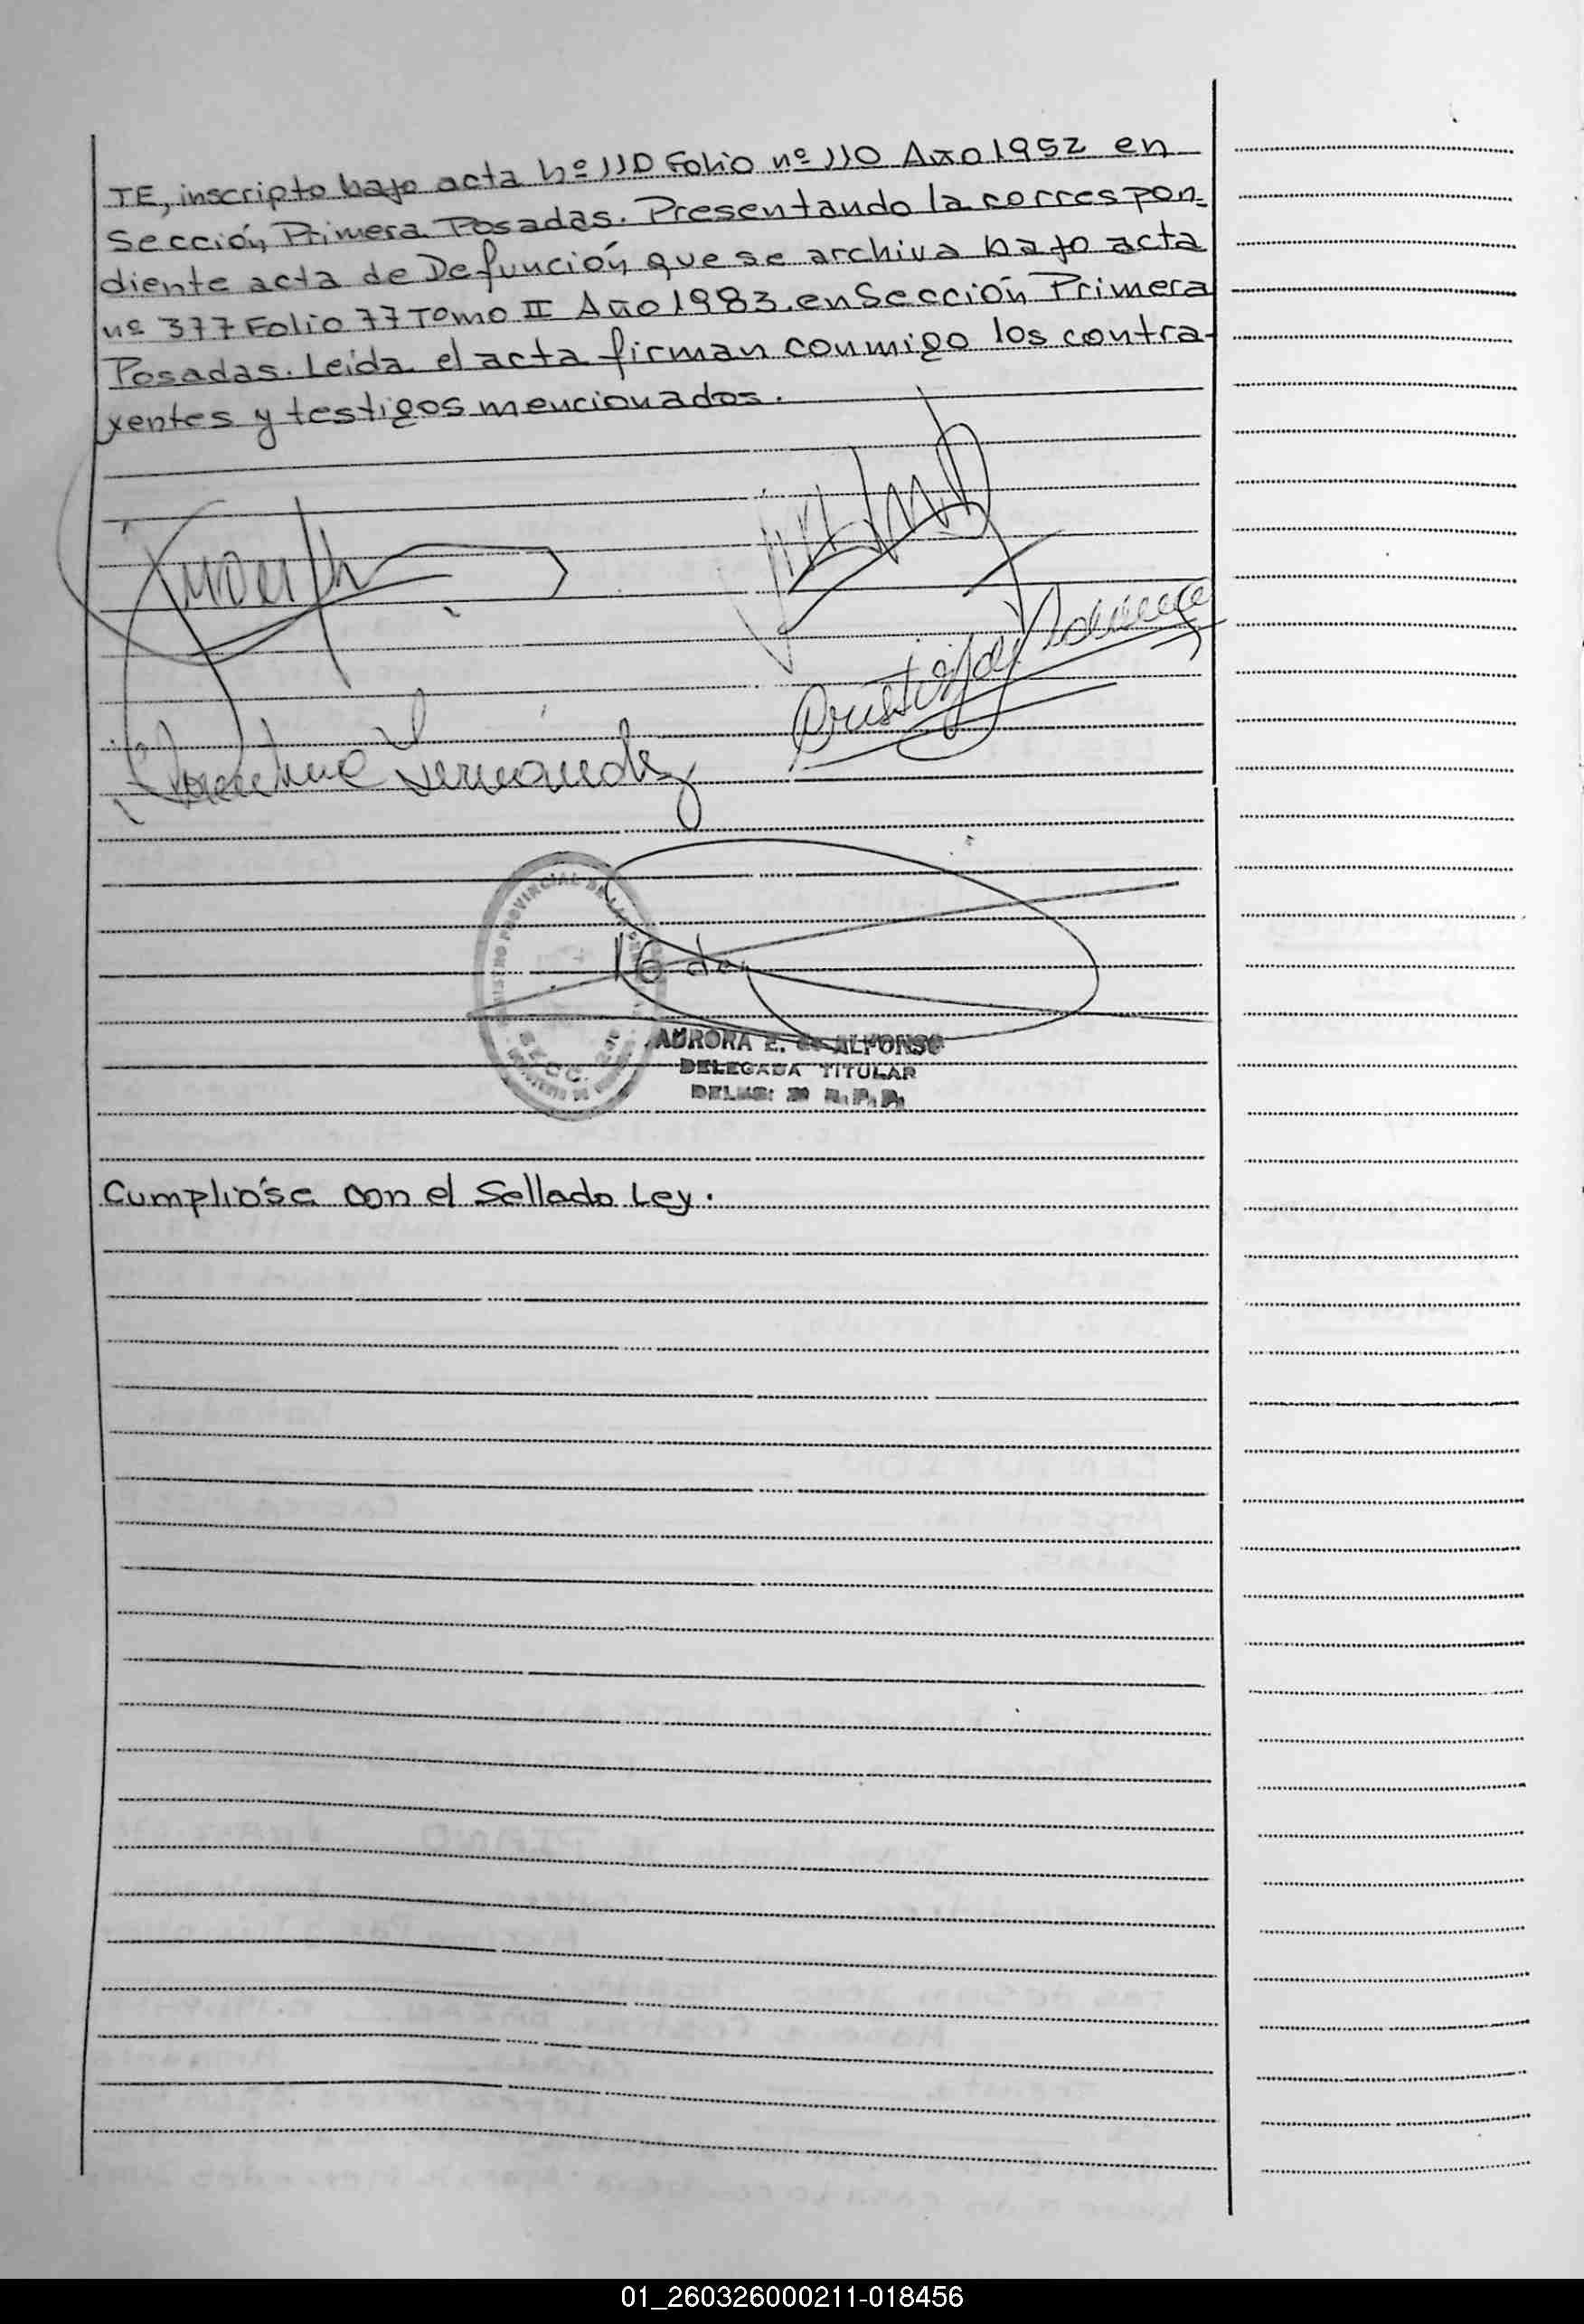 TE, inscripto bajo acta nº 110 Folio nº 110 Año 1952 en
Sección Primera Posadas. Presentando la correspon=
diente acta de Defunción que se archiva bajo acta
nº 377 Folio 77 Tomo II Año 1983. en Sección Primera
Posadas. Leída el acta firman conmigo los contra-
yentes y testigos mencionados.
Fernández
AURORA E. de ALFONSO
DELEGADA TITULAR
Cumplióse con el Sellado Ley.
01_260326000211-018456